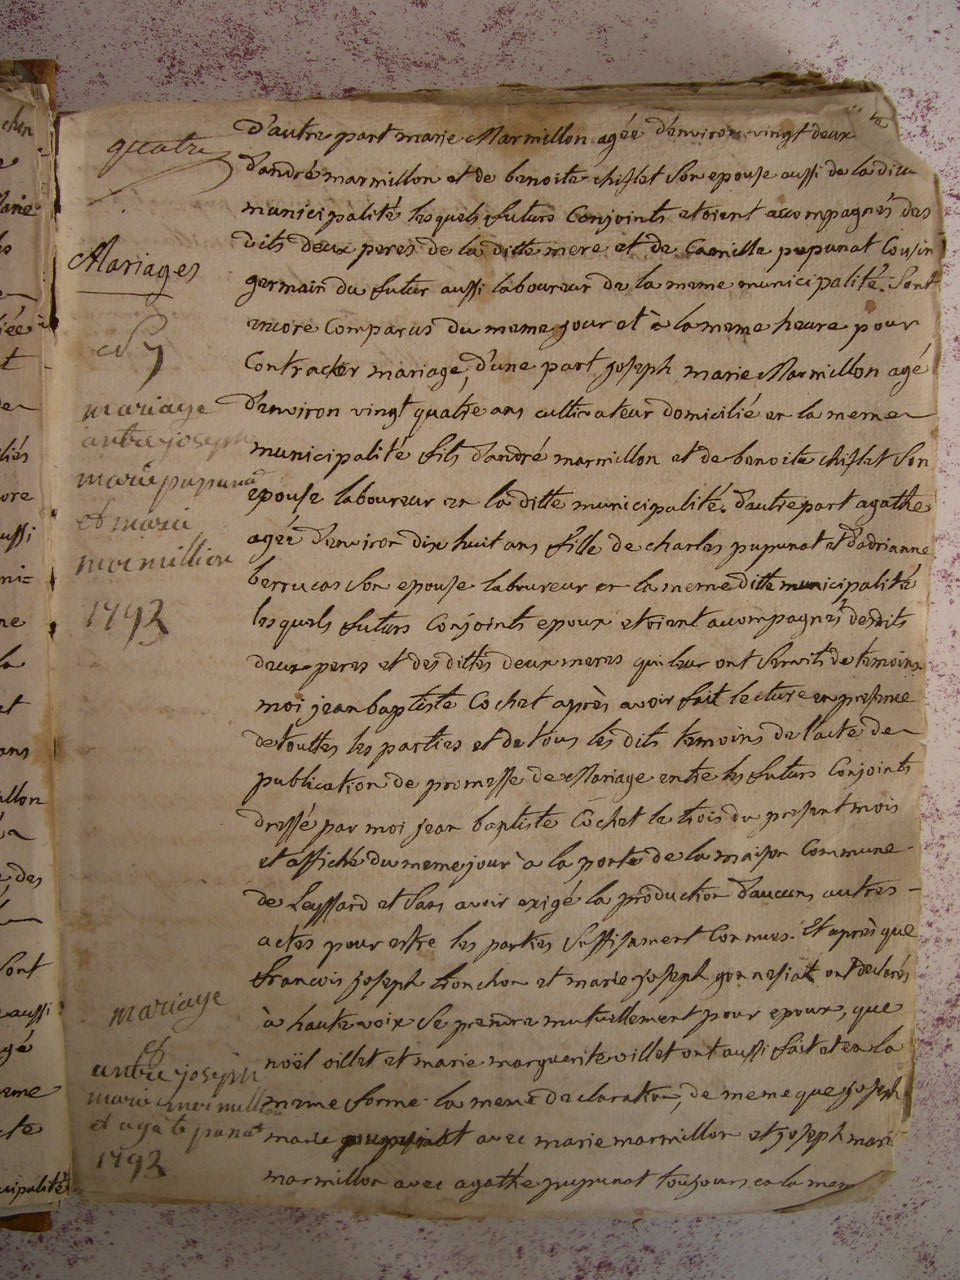 quatre
Mariages
mariage
entre joseph
marie pupuna
et marie
mermillion
1793
d'autre part marie Marmillon agée d'environ vingt deux
d'andré marmillon et de benoite chiflet son epouse aussi de la dite
municipalité lesquels futurs Conjoints etoient accompagnés des
dits deux peres de la ditte mere et de Camille pupunat Cousin
germain du futur aussi laboureur de la meme municipalité. Sont
encore Comparus du meme jour et à la meme heure pour
Contracter mariage, d'une part joseph marie Marmillon agé
d'environ vingt quatre ans cultivateur domicilié en la meme
municipalité fils d'andré marmillon et de benoite chiflet son
epouse laboureur en la ditte municipalité. d'autre part agathe
agée d'environ dix huit ans fille de charles pupunat et d'adrianne
berrucas son epouse laboureur en la meme ditte municipalité
lesquels futurs Conjoints epoux etoient accompagnés desdits
deux peres et des dittes deux meres qui leur ont servits de témoins
moi jean baptiste Cochet après avoir fait lecture en presence
de touttes les parties et de tous les dits temoins de l'acte de
publication de promesse de Mariage entre les futurs Conjoints
dressé par moi jean baptiste Cochet le trois du present mois
et affiché du meme jour à la porte de la maison Commune
de Leyssard et sans avoir exigé la production d'aucuns autres
actes pour estre les parties suffisament Connues. Et après que
francois joseph tronchon et marie joseph gonnesiat ont déclarés
à haute voix se prendre mutuellement pour epoux, que
noël oillet et marie marguerite oillet ont aussi fait et en la
meme forme la meme declaration, de meme que joseph
marie pupunat avec marie marmillon et joseph mari
marmillon avec agathe pupunat toujours en la mem
mariage
entre joseph
marie mermillon
et agate punat
1793